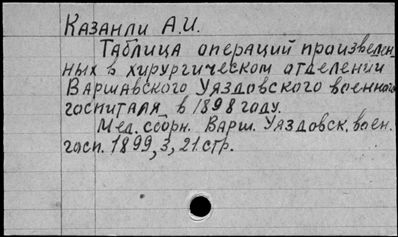 Казанли А.И.
Таблица операций произведен-
ных в хирургическом отделении
Варшавского Уяздовского военного
госпиталя в 1898 году.
Мед. сборн. Варш. Уяздовск. воен.
госп. 1899, 3, 21 стр.